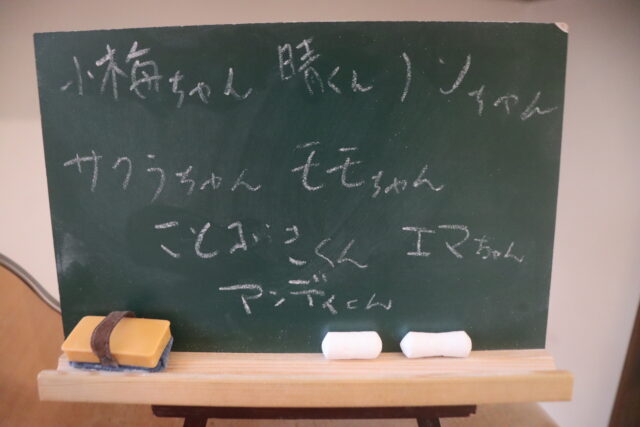 小梅ちゃん 晴くん ノンちゃん
サクラちゃん モモちゃん
くん エマちゃん
アンディくん